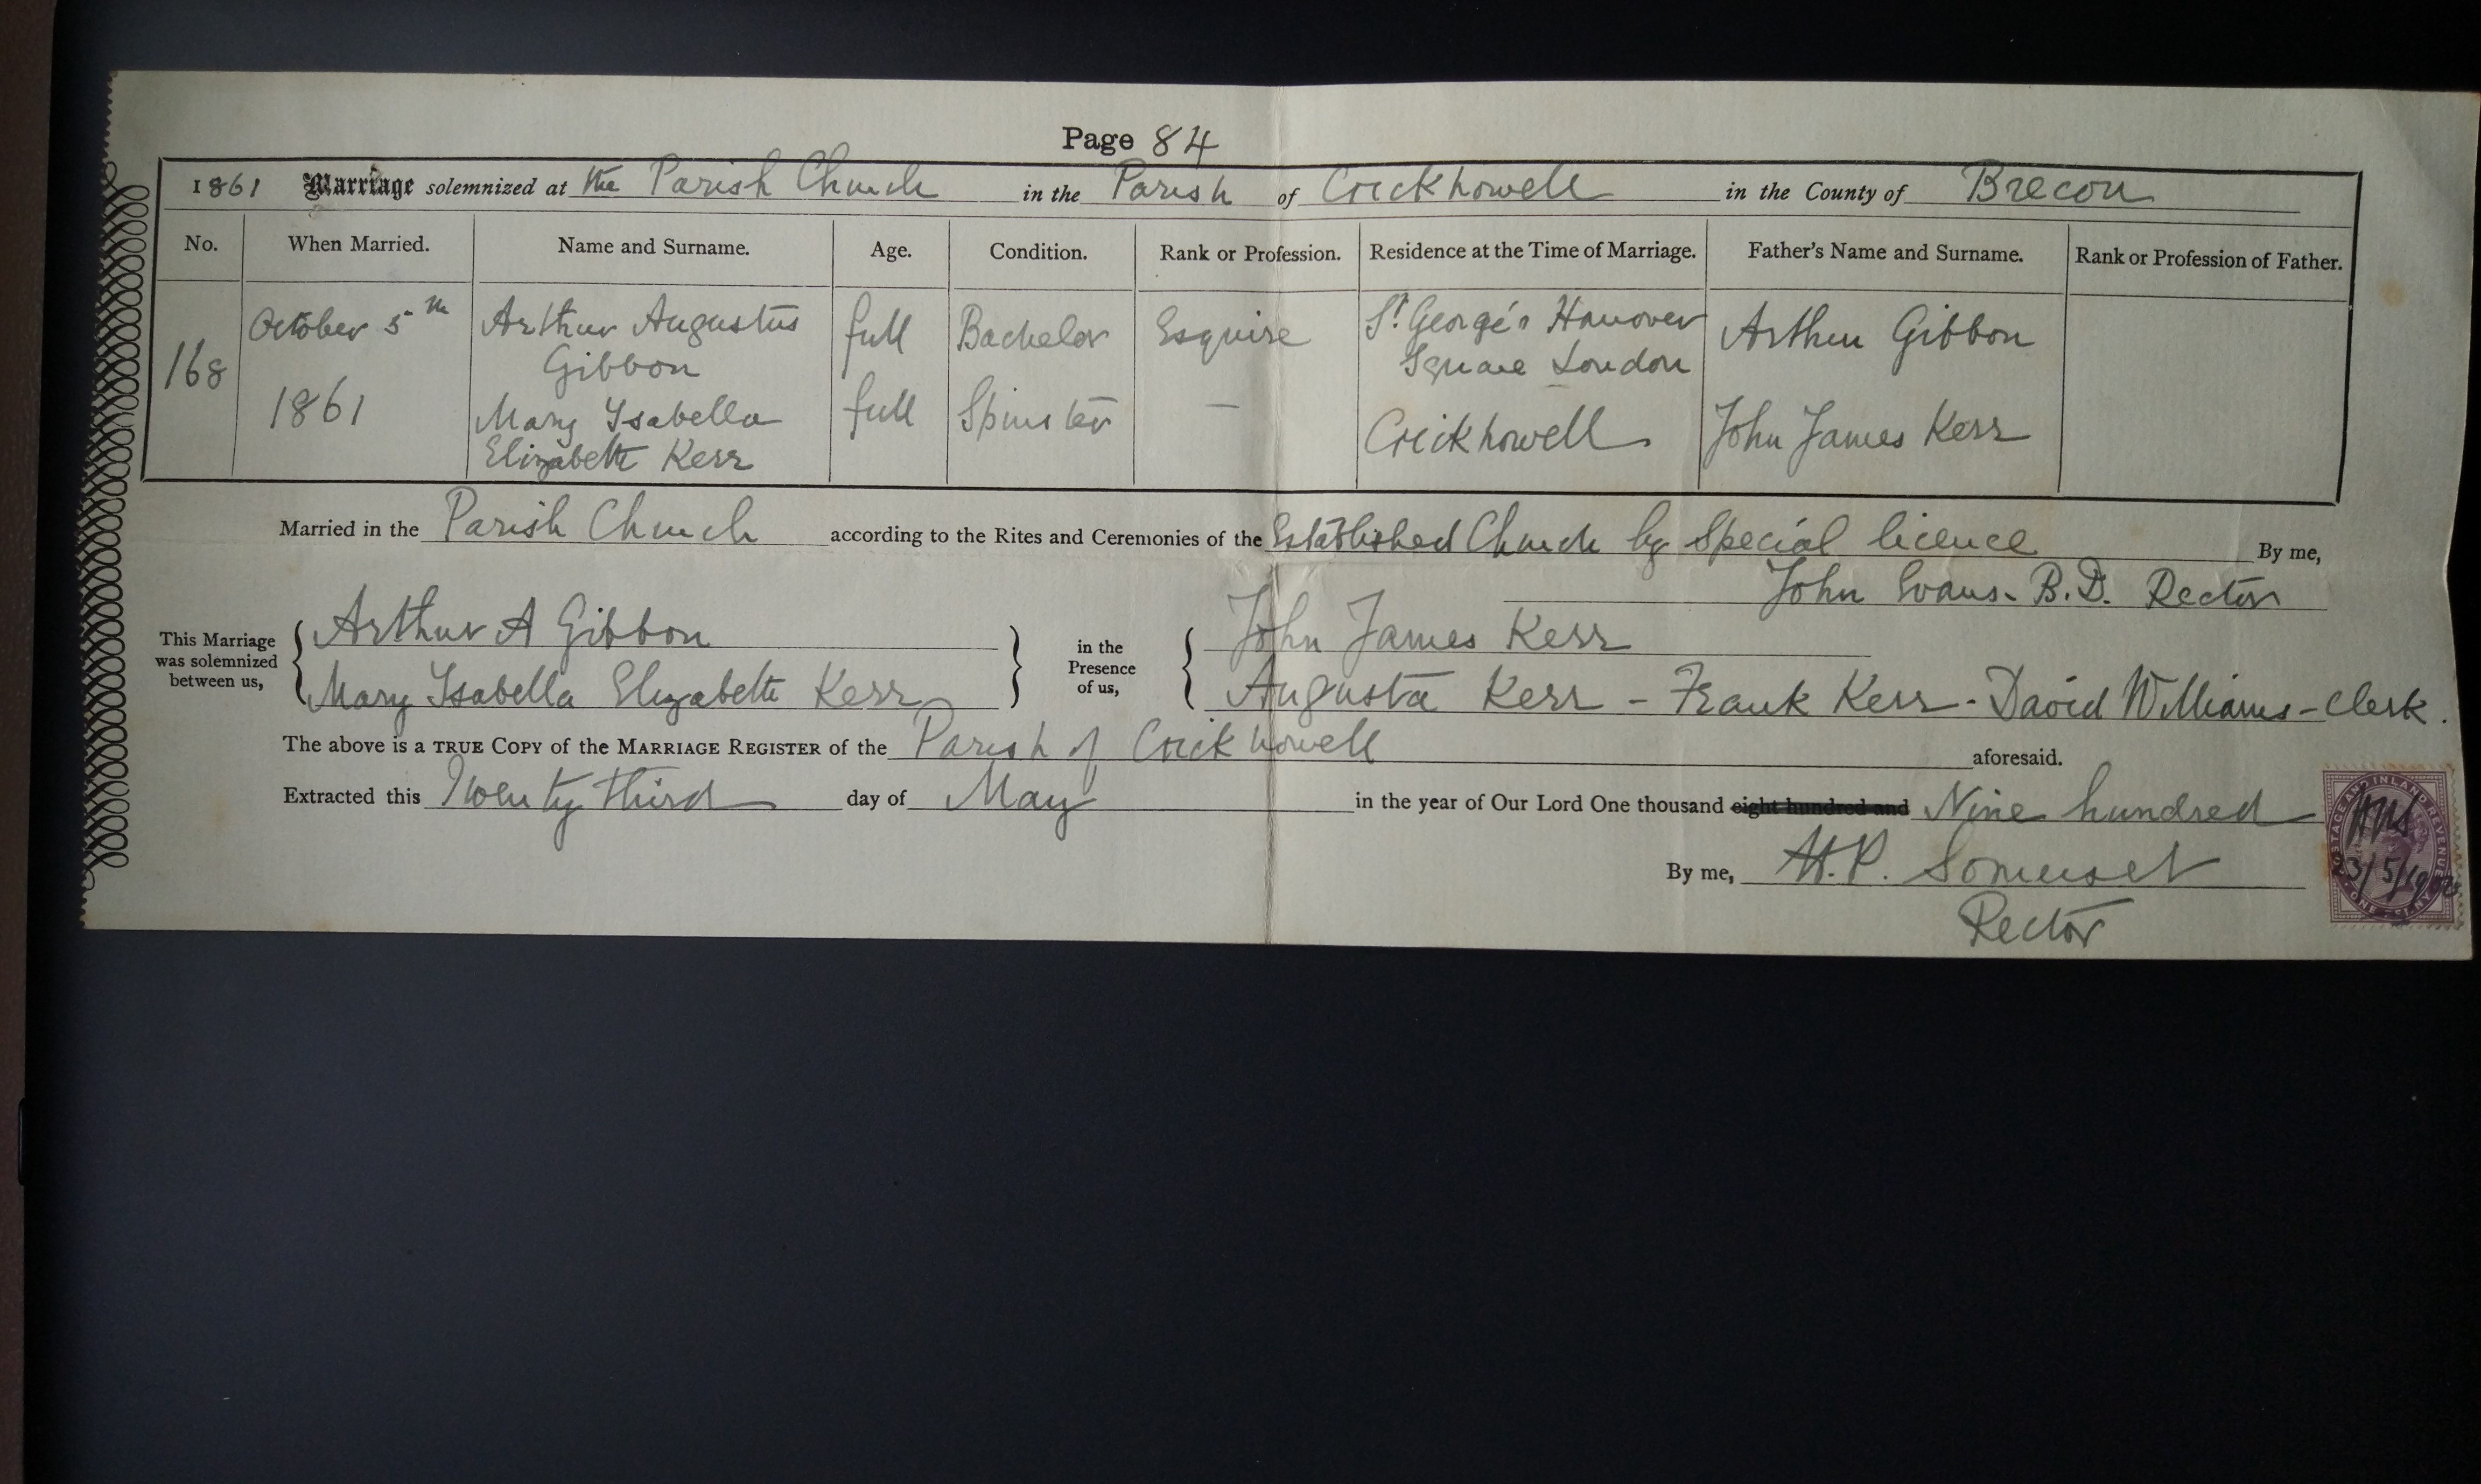 Page 84
1861 Marriage solemnized at the Parish Church in the Parish of Crickhowell in the County of Brecon
No. When Married. Name and Surname. Age. Condition. Rank or Profession. Residence at the Time of Marriage. Father's Name and Surname. Rank or Profession of Father.
168 October 5th 1861
Arthur Augustus Gibbon full Bachelor Esquire St George's Hanover Square London Arthur Gibbon
Mary Isabella Elizabeth Kerr full Spinster — Crickhowell. John James Kerr
Married in the Parish Church according to the Rites and Ceremonies of the Established Church by Special licence By me,
John Evans. B.D. Rector
This Marriage was solemnized between us, { Arthur A Gibbon } in the Presence of us, { John James Kerr
Mary Isabella Elizabeth Kerr Augusta Kerr - Frank Kerr - David Williams - Clerk.
The above is a TRUE COPY of the MARRIAGE REGISTER of the Parish of Crickhowell aforesaid.
Extracted this Twenty third day of May in the year of Our Lord One thousand eight hundred and Nine hundred
By me, H.P. Somerset
Rector
POSTAGE AND INLAND REVENUE
ONE PENNY